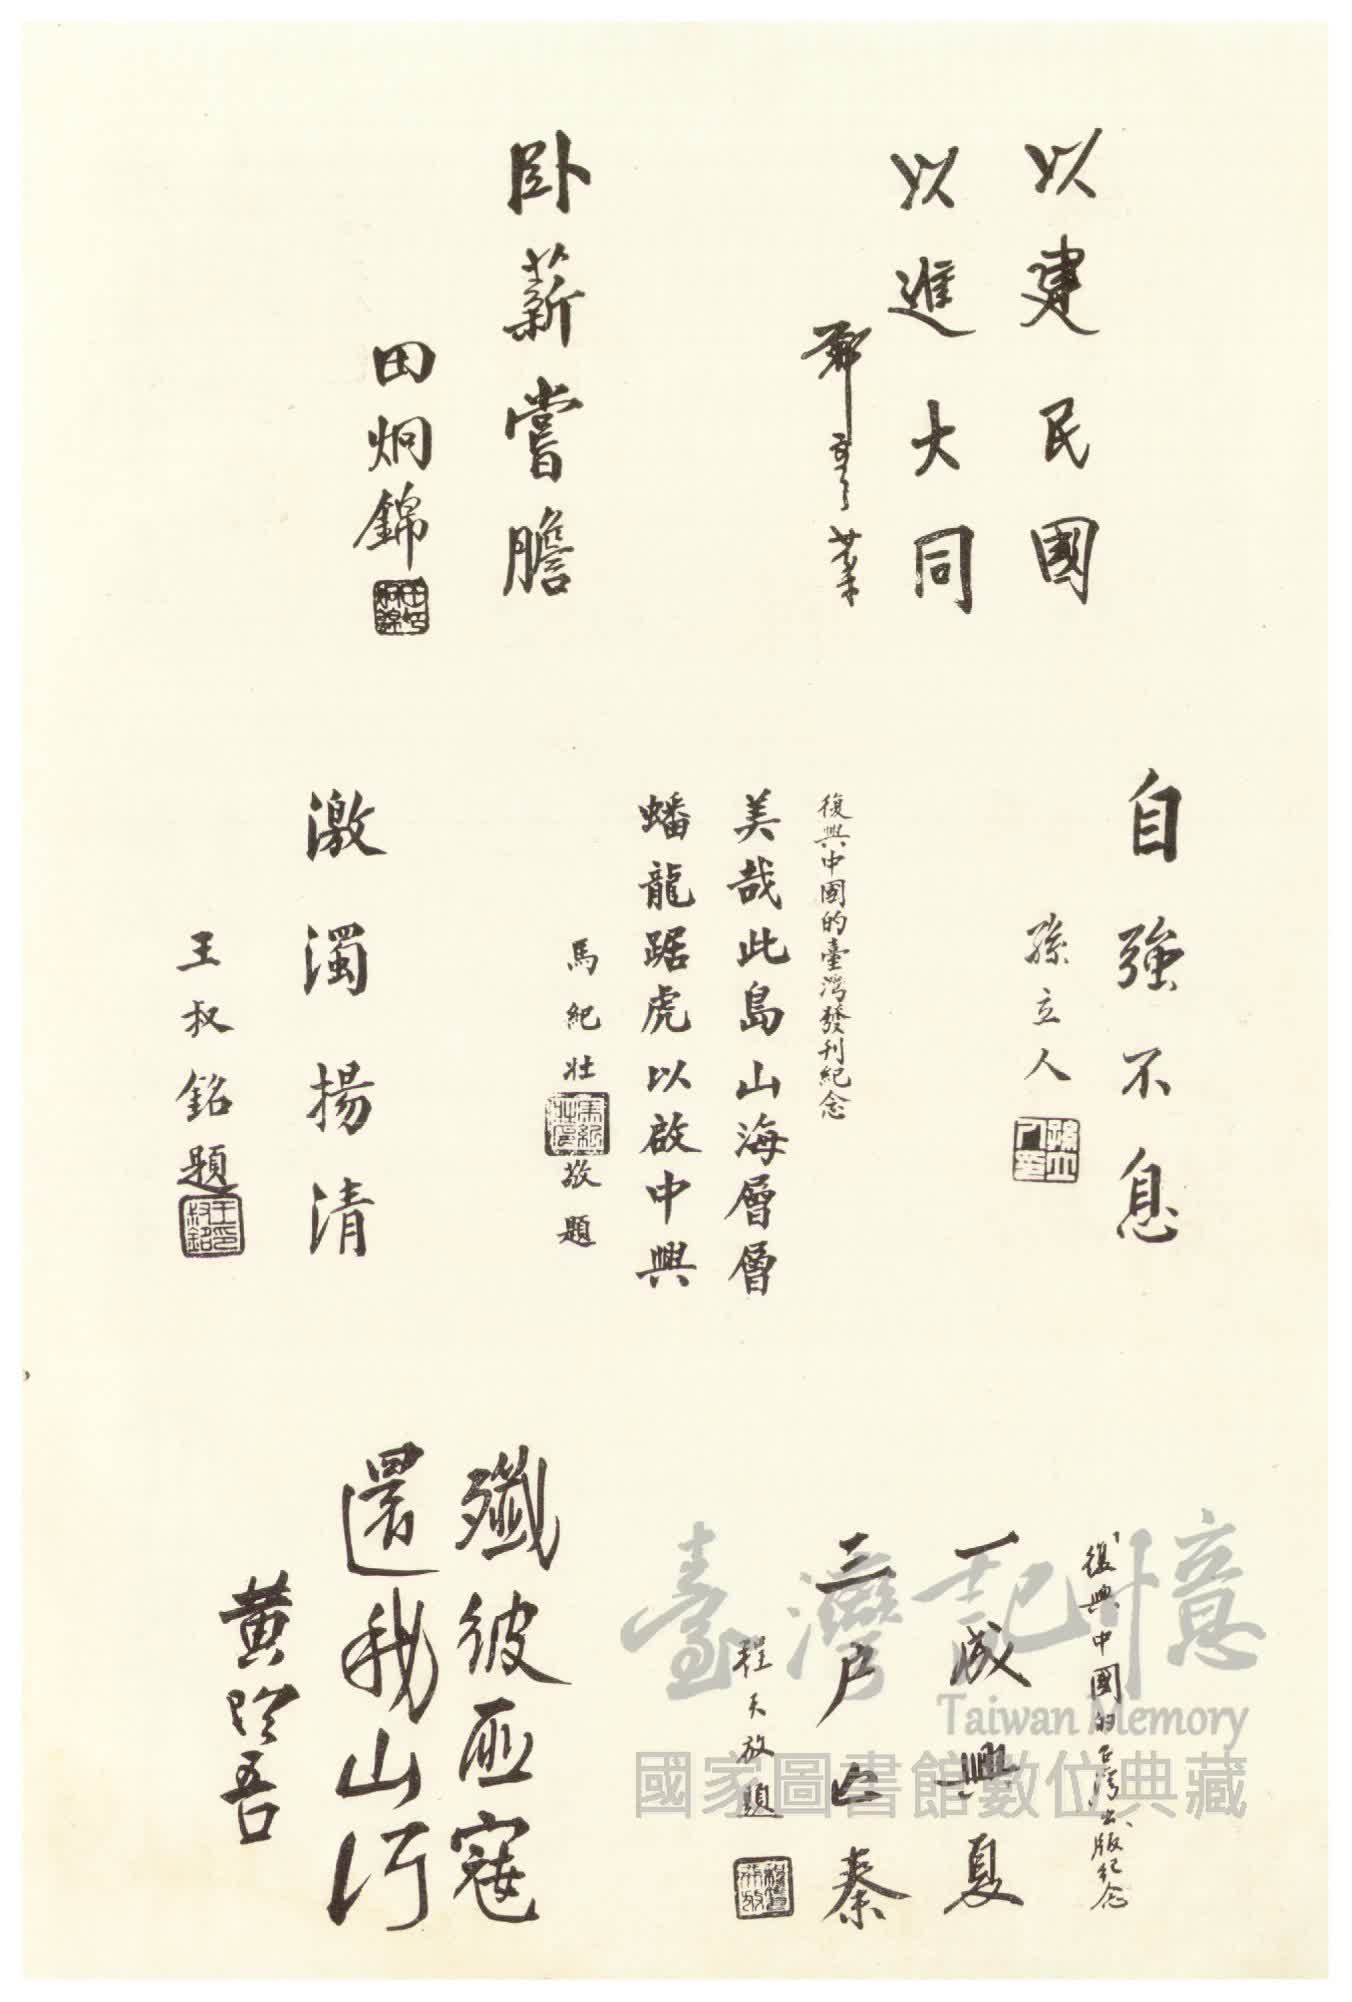 以建民國
以進大同
鄭彥棻
臥薪嘗膽
田炯錦
自強不息
孫立人
復興中國的臺灣發刊紀念
美哉此島山海層層
蟠龍踞虎以啟中興
馬紀壯敬題
激濁揚清
王叔銘題
復興中國的台灣出版紀念
一成興夏
三戶亡秦
程天放題
殲彼匪寇
還我山河
黃珍吾
臺灣記憶
Taiwan Memory
國家圖書館數位典藏